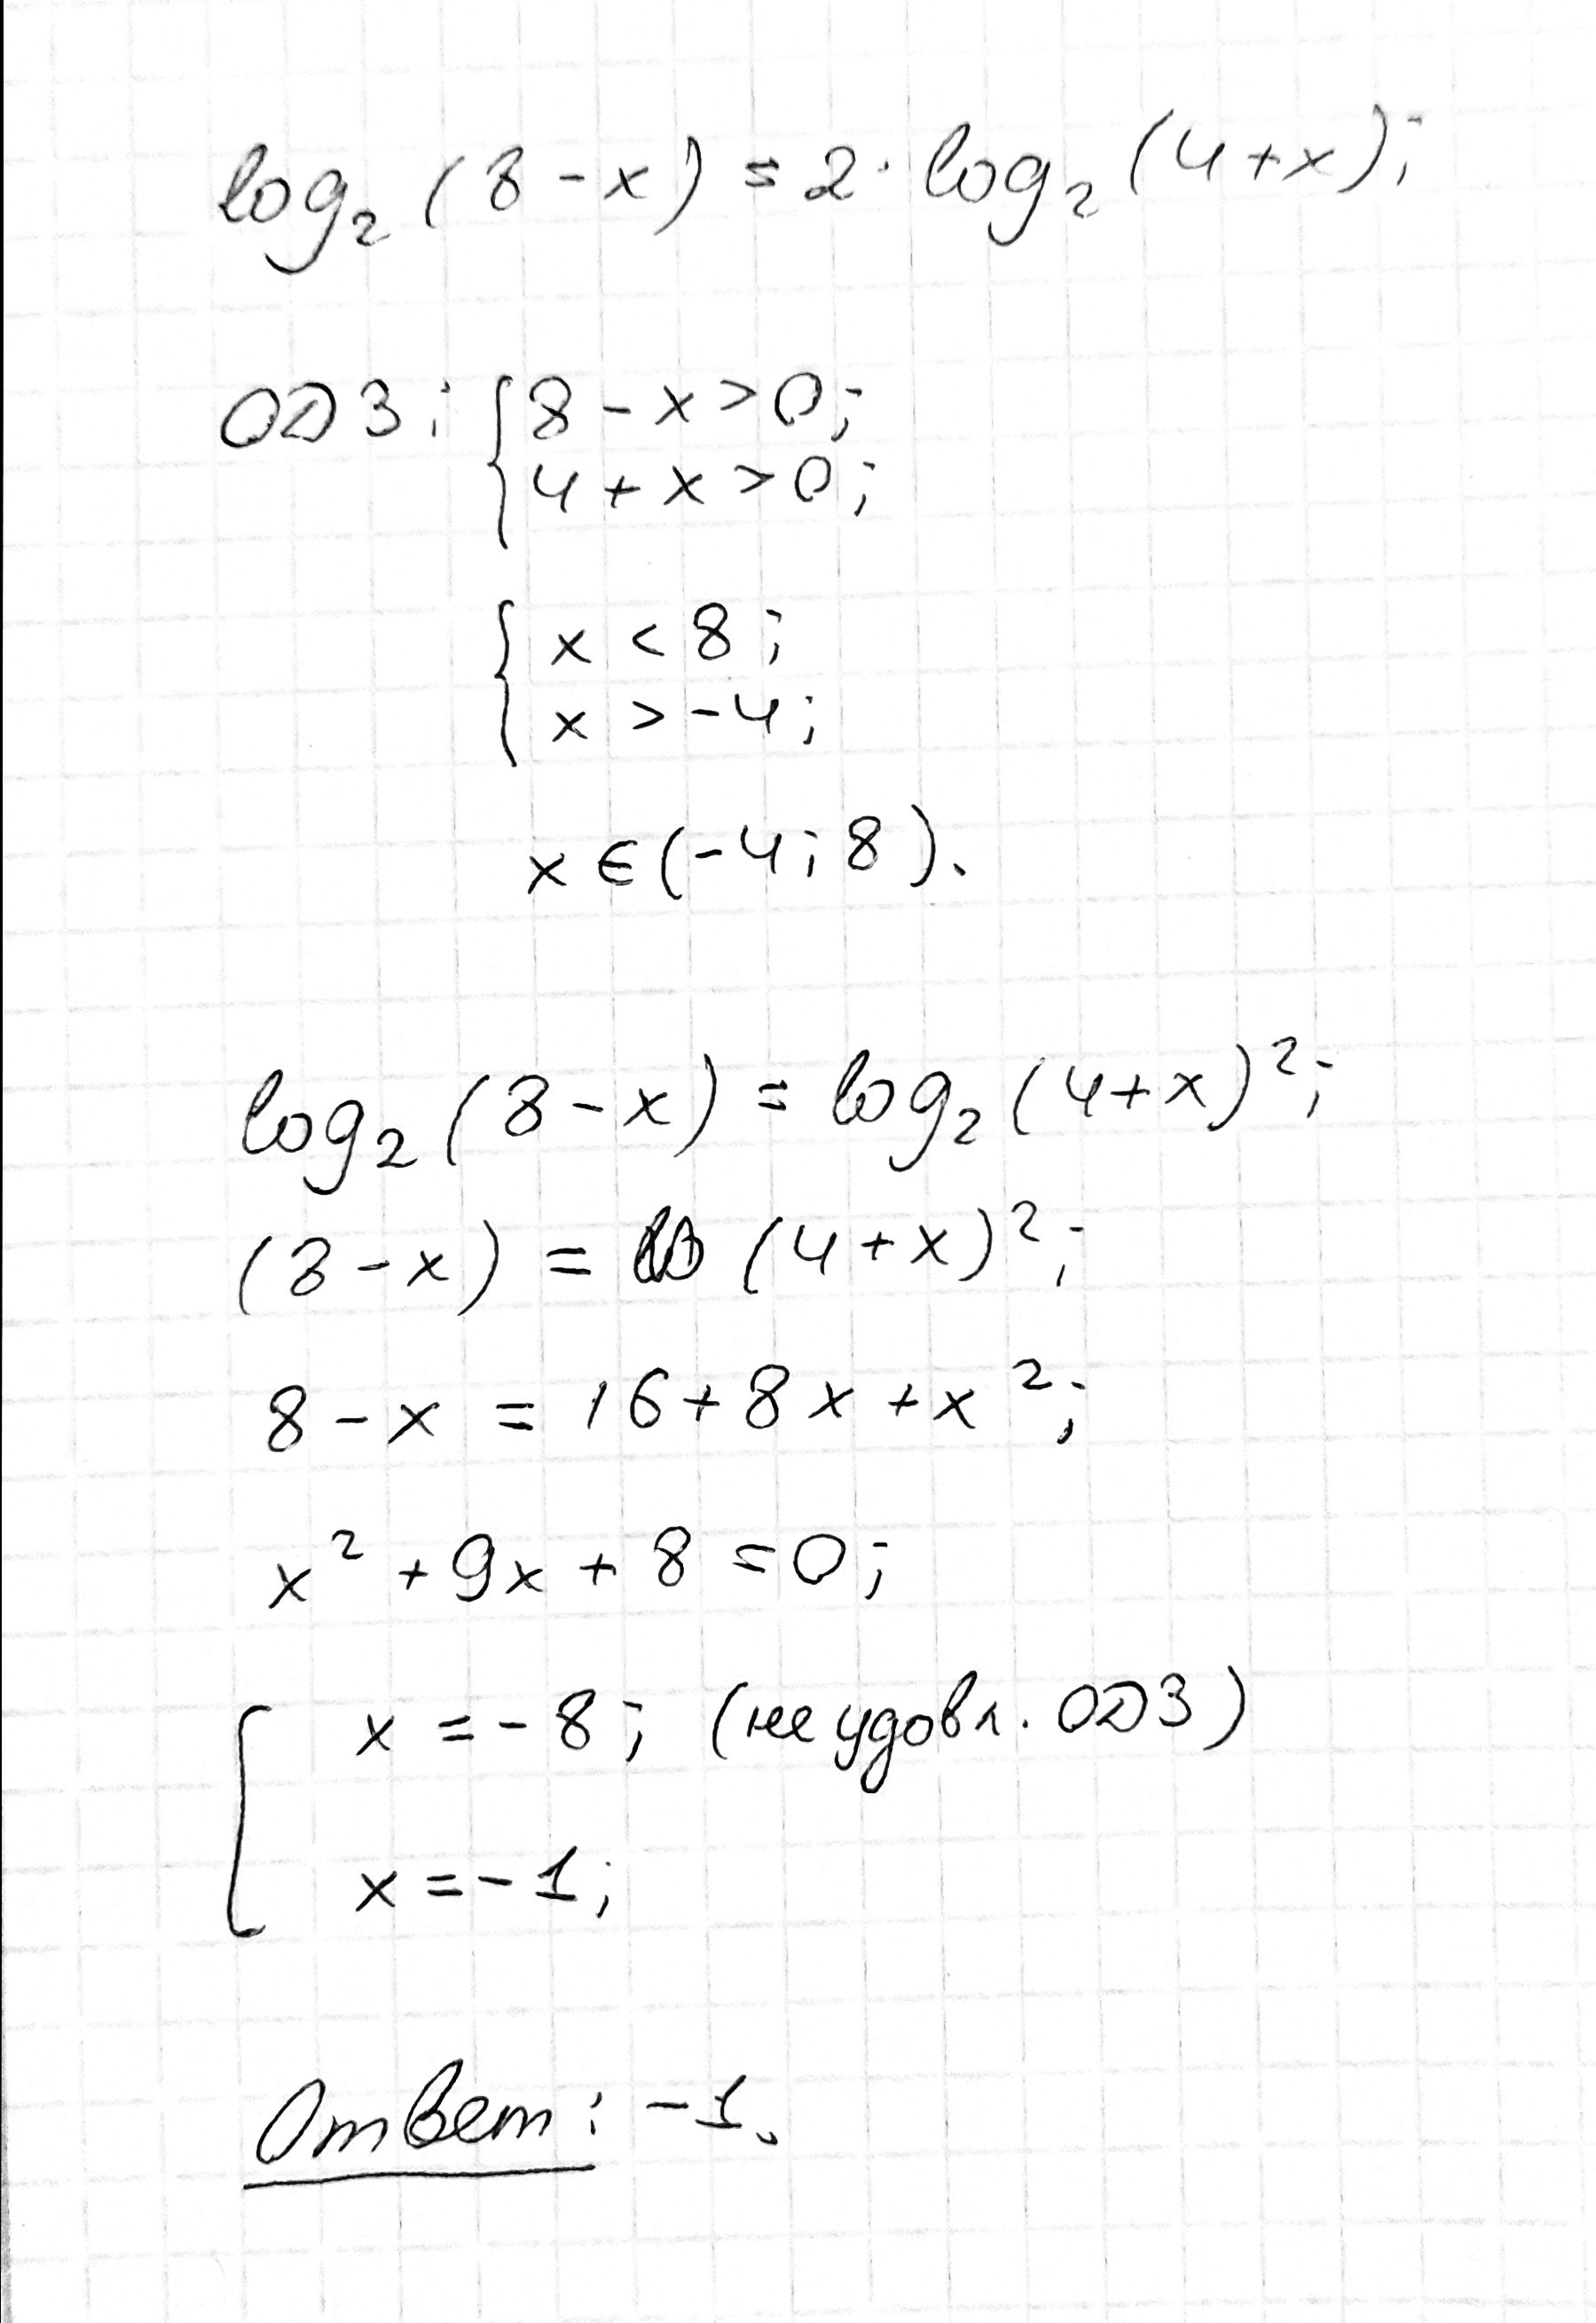 log₂(8-x) = 2·log₂(4+x);
ОДЗ: { 8-x>0;
4+x>0;
{ x<8;
x>-4;
x∈(-4;8).
log₂(8-x) = log₂(4+x)²;
(8-x) = (4+x)²;
8-x = 16+8x+x²;
x²+9x+8=0;
[ x=-8; (не удовл. ОДЗ)
x=-1;
Ответ: -1.